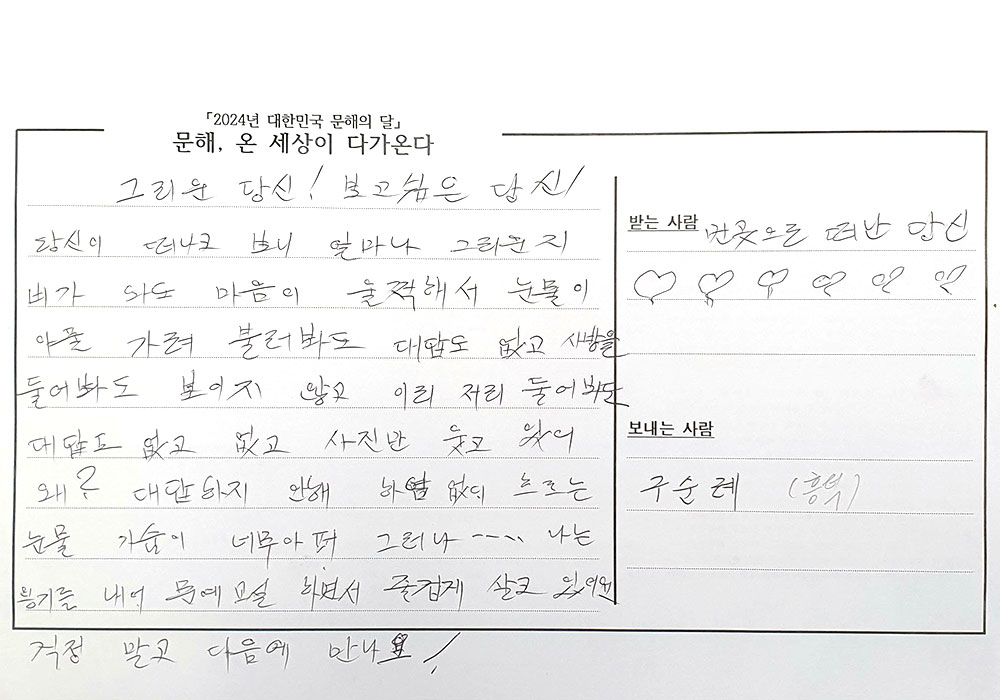 「2024년 대한민국 문해의 달」
문해, 온 세상이 다가온다
그리운 당신! 보고싶은 답신!
당신이 떠나고 보니 얼마나 그리운지
비가 와도 마음이 울적해서 눈물이
앞을 가려 불러봐도 대답도 없고 사방을
둘어봐도 보이지 않고 이리 저리 둘어봐도
대답도 없고 없고 사진만 웃고 있서
왜? 대답하지 안해 하염 없이 흐르는
눈물 가슴이 너무아퍼 그러나 ---.. 나는
용기를 내어 문예교실 하면서 즐겁게 살고 있어요
걱정 말고 다음에 만나요!
받는 사람 먼곳으로 떠난 당신
♡ ♡ ♡ ♡ ♡ ♡
보내는 사람
구순례 (흥덕)